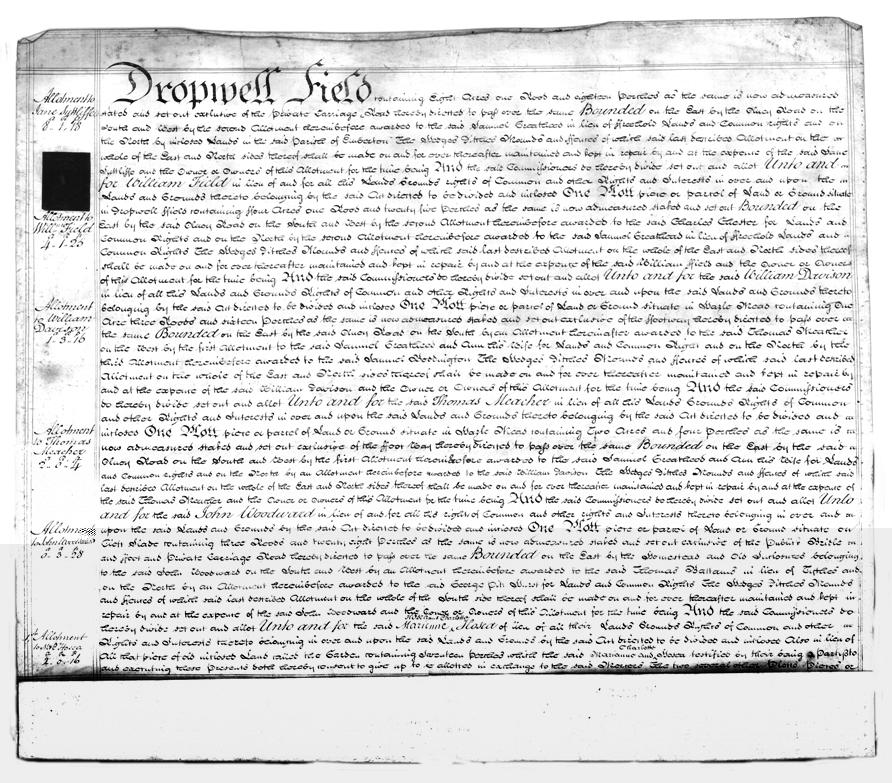 Allotment to
Jane Sutcliffe
8. 1. 18
Dropwell Field containing Eight Acres one Rood and eighteen Perches as the same is now admeasured
stated and set out exclusive of the Private Carriage Road thereby directed to pass over the same Bounded on the East by the Olney Road on the
South and West by the second Allotment hereinbefore awarded to the said Samuel Greatheed in lieu of ffreehold Lands and Common rights and on
the North by inclosed Lands in the said Parish of Emberton The Hedges Ditches Mounds and ffences of which said last described Allotment on the
whole of the East and North sides thereof shall be made on and for ever thereafter maintained and kept in repair by and at the expense of the said Jane
Sutcliffe and the Owner or Owners of this Allotment for the time being And the said Commissioners do hereby divide set out and allot Unto and
for William Field in lieu of and for all his Lands Grounds rights of Common and other Rights and Interests in over and upon the
Lands and Grounds thereto belonging by the said Act directed to be divided and inclosed One Plott piece or parcel of Land or Ground situate
Allotment to
Willm Field
4. 1. 25
in Dropwell ffield containing ffour Acres one Rood and twenty five Perches as the same is now admeasured staked and set out Bounded on the
East by the said Olney Road on the South and West by the second Allotment hereinbefore awarded to the said Charles Chester for Lands and
Common Rights and on the North by the second Allotment hereinbefore awarded to the said Samuel Greatheed in lieu of ffreehold Lands and
Common Rights The Hedges Ditches Mounds and ffences of which said last described Allotment on the whole of the East and North sides thereof
shall be made on and for ever thereafter maintained and kept in repair by and at the expense of the said William ffield and the Owner or Owners
of this Allotment for the time being And the said Commissioners do hereby divide set out and allot Unto and for the said William Davison
in lieu of all his Lands and Grounds Rights of Common and other Rights and Interests in over and upon the said Lands and Grounds thereto
belonging by the said Act directed to be divided and inclosed One Plott piece or parcel of Land or Ground situate in containing One
Allotment
to William
Davison
1. 3. 16
Acre three Roods and sixteen Perches as the same is now admeasured staked and set out exclusive of the ffootway thereby directed to pass over
the same Bounded on the East by the said Olney Road on the South by an Allotment hereinafter awarded to the said Thomas Meacher
on the West by the first Allotment to the said Samuel Greatheed and Ann his Wife for Lands and Common Right and on the North by the
third Allotment hereinbefore awarded to the said Samuel Hoddington The Hedges Ditches Mounds and ffences of which said last described
Allotment on the whole of the East and North sides thereof shall be made on and for ever thereafter maintained and kept in repair by
and at the expense of the said William Davison and the Owner or Owners of this Allotment for the time being And the said Commissioners
do hereby divide set out and allot Unto and for the said Thomas Meacher in lieu of all his Lands Grounds Rights of Common
and other Rights and Interests in over and upon the said Lands and Grounds thereto belonging by the said Act directed to be divided and
Allotment
to Thomas
Meacher
2. 3. 4
inclosed One Plott piece or parcel of Land or Ground situate in containing Two Acres and four Perches as the same is
now admeasured staked and set out exclusive of the ffoot Way thereby directed to pass over the same Bounded on the East by the said
Olney Road on the South and West by the first Allotment hereinbefore awarded to the said Samuel Greatheed and Ann his Wife for Lands
and Common rights and on the North by an Allotment hereinbefore awarded to the said William Davison The Hedges Ditches Mounds and ffences of which said
last described Allotment on the whole of the East and North sides thereof shall be made on and for ever thereafter maintained and kept in repair by and at the expense of
the said Thomas Meacher and the Owner or Owners of this Allotment for the time being And the said Commissioners do hereby divide set out and allot Unto
and for the said John Woodward in lieu of and for all his right of Common and other rights and Interests thereto belonging in over and
Allotment
to John Woodward
3. 28
upon the said Lands and Grounds by the said Act directed to be divided and inclosed One Plott piece or parcel of Land or Ground situate on
Slade containing three Roods and twenty eight Perches as the same is now admeasured staked and set out exclusive of the Public Bridle
and ffoot and Private Carriage Road thereby directed to pass over the same Bounded on the East by the Homestead and Old Inclosures belonging
to the said John Woodward on the South and West by an Allotment hereinbefore awarded to the said Thomas in lieu of Tythes and
on the North by an Allotment hereinbefore awarded to the said George Hurst for Lands and Common Rights The Hedges Ditches Mounds
and ffences of which said last described Allotment on the whole of the South side thereof shall be made on and for ever thereafter maintained and kept in
repair by and at the expense of the said John Woodward and the Owner or Owners of this Allotment for the time being And the said Commissioners do
hereby divide set out and allot Unto and for the said in lieu of all their Lands Grounds Rights of Common and other
Allotment
Rights and Interests thereto belonging in over and upon the said Lands and Grounds by the said Act directed to be divided and inclosed Also in lieu of
Charlotte
All that piece of old inclosed Land called the Garden containing Seventeen Perches which the said and testified by their being Partys to
and executing these Presents doth hereby consent to give up to be allotted in exchange to the said The two several other Plotts Pieces or